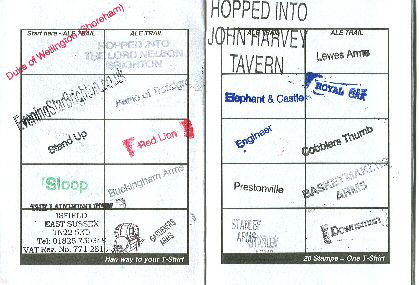 Start here - ALE TRAIL
ALE TRAIL
Duke of Wellington (Shoreham)
HOPPED INTO
THE LORD NELSON
BRIGHTON
EveningStarBrighton.co.uk
Stand Up
Red Lion
Sloop
Buckingham Arms
ISFIELD
EAST SUSSEX
TN22 5XB
Tel: 01825 750
VAT Reg. No. 771 281
GARDENERS
ARMS
Half way to your T-Shirt
HOPPED INTO
JOHN HARVEY
TAVERN
ALE TRAIL
ALE TRAIL
Lewes Arms
Elephant & Castle
ROYAL OAK
Engineer
Cobblers Thumb
Prestonville
BASKETMAKERS
ARMS
STANLEY
ARMS
Downsman
20 Stamps = One T-Shirt